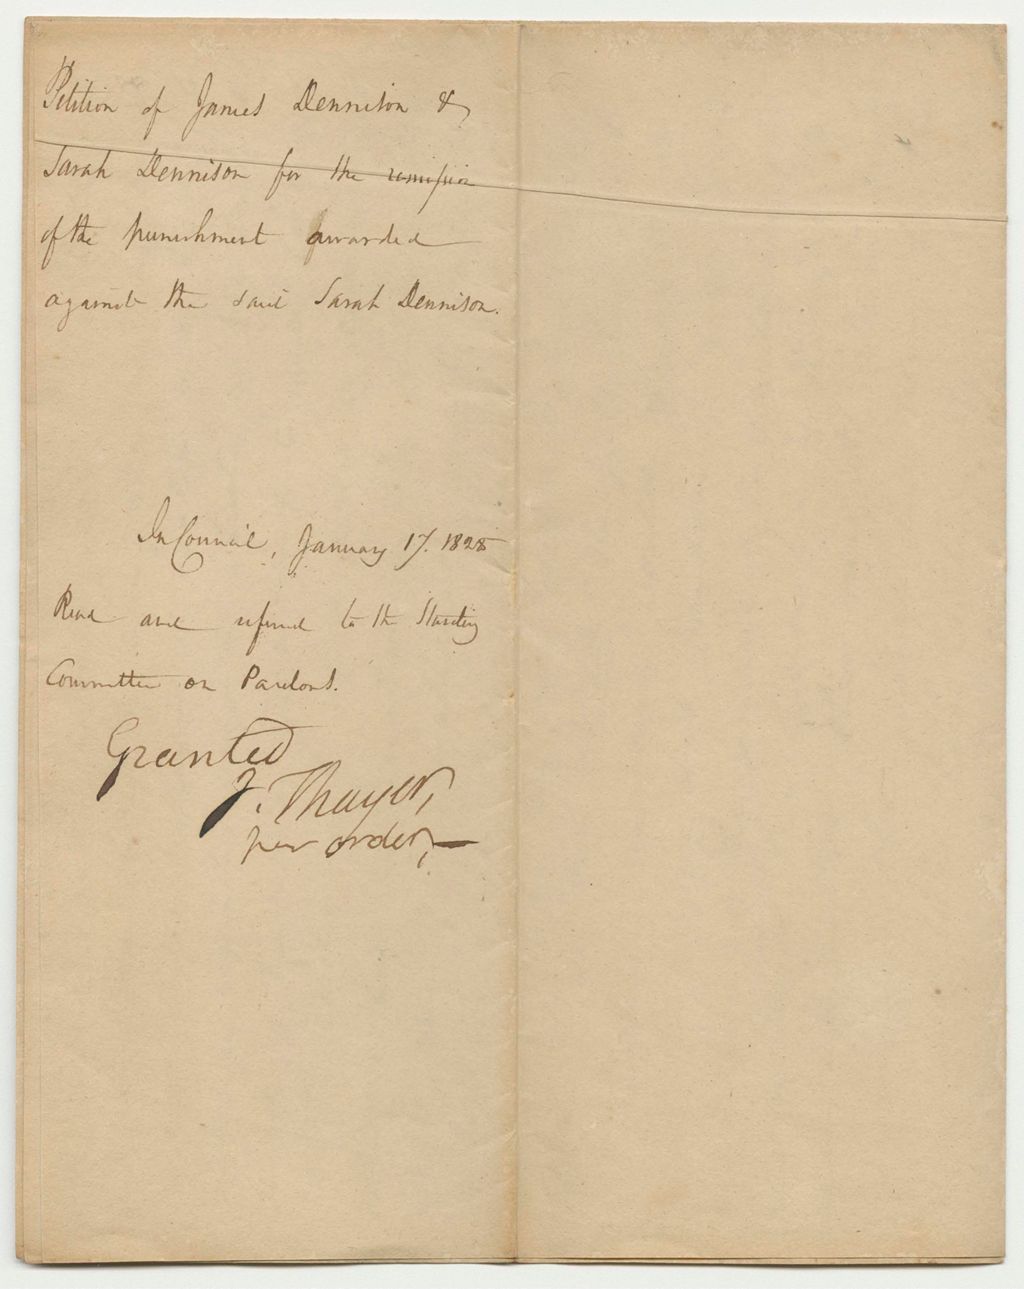 Petition of James Dennison &
Sarah Dennison for the remission
of the punishment awarded
against the said Sarah Dennison.
In Council, January 17. 1828
Read and referred to the Standing
Committee on Pardons.
Granted
J. Thayer,
per order,